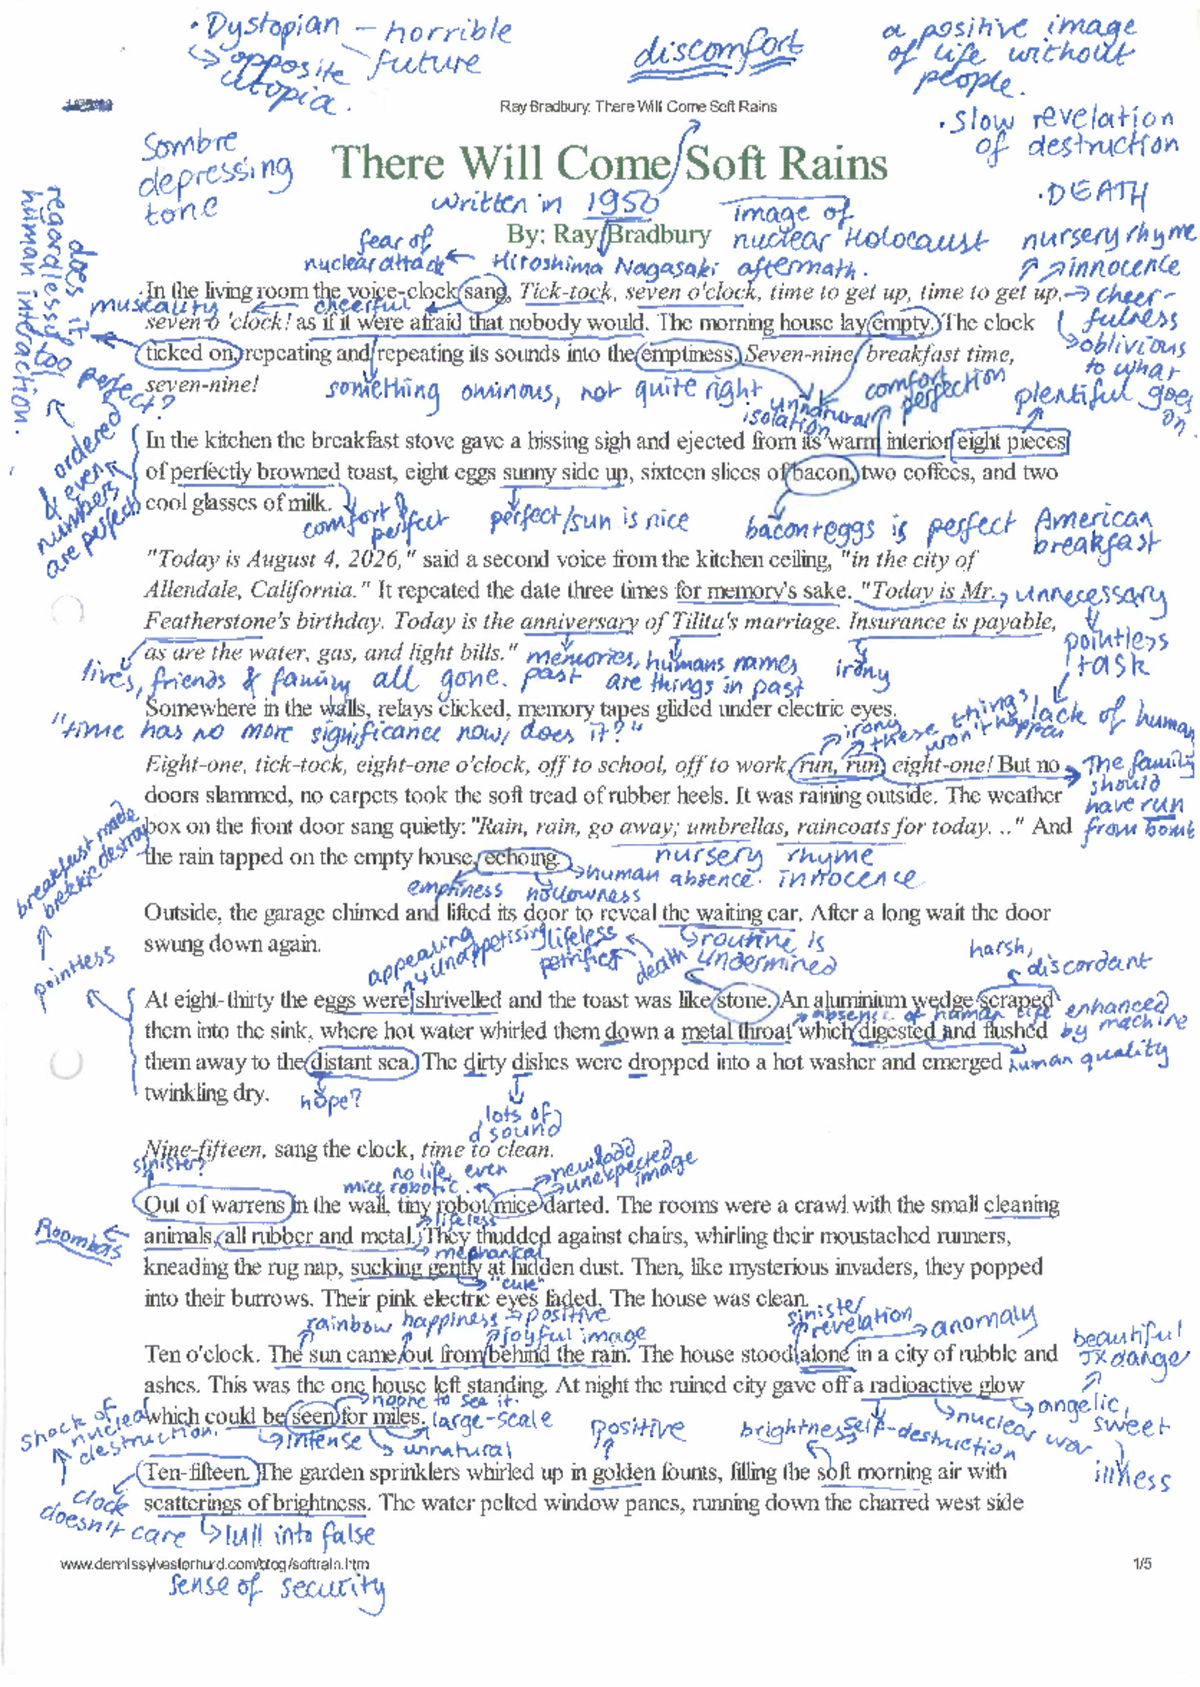 · Dystopian – horrible future
↳ opposite utopia.
discomfort
a positive image of life without people.
Ray Bradbury: There Will Come Soft Rains
· slow revelation of destruction
Sombre depressing tone
There Will Come Soft Rains
· DEATH
written in 1950
image of nuclear Holocaust
By: Ray Bradbury
nursery rhyme
innocence
fear of nuclear attack ← Hiroshima Nagasaki aftermath.
does it regardless of human interaction.
too perfect?
musicality ← cheerful
→ cheerfulness
oblivious to what goes on.
In the living room the voice-clock sang, Tick-tock, seven o'clock, time to get up, time to get up,
seven o 'clock! as if it were afraid that nobody would. The morning house lay empty. The clock
ticked on, repeating and repeating its sounds into the emptiness. Seven-nine, breakfast time,
seven-nine!
something ominous, not quite right
unnatural isolation
comfort perfection
plentiful
ordered & even numbers are perfect
In the kitchen the breakfast stove gave a hissing sigh and ejected from its warm interior eight pieces
of perfectly browned toast, eight eggs sunny side up, sixteen slices of bacon, two coffees, and two
cool glasses of milk.
comfort & perfect
perfect/sun is nice
bacon+eggs is perfect American breakfast
"Today is August 4, 2026," said a second voice from the kitchen ceiling, "in the city of
Allendale, California." It repeated the date three times for memory's sake. "Today is Mr.
Featherstone's birthday. Today is the anniversary of Tilita's marriage. Insurance is payable,
as are the water, gas, and light bills."
→ unnecessary
pointless task
memories, past
humans names are things in past
irony
lives, friends & family all gone.
Somewhere in the walls, relays clicked, memory tapes glided under electric eyes.
"time has no more significance now, does it?"
irony
these things won't happen
lack of human
Eight-one, tick-tock, eight-one o'clock, off to school, off to work, run, run, eight-one! But no
doors slammed, no carpets took the soft tread of rubber heels. It was raining outside. The weather
box on the front door sang quietly: "Rain, rain, go away; umbrellas, raincoats for today. .." And
the rain tapped on the empty house, echoing.
The family should have run from bomb
breakfast made
brekkie destroy
pointless
nursery rhyme
innocence
human absence.
emptiness
hollowness
Outside, the garage chimed and lifted its door to reveal the waiting car. After a long wait the door
swung down again.
routine is undermined
appealing → unappetising
lifeless petrified
death
harsh, discordant
At eight-thirty the eggs were shrivelled and the toast was like stone. An aluminium wedge scraped
them into the sink, where hot water whirled them down a metal throat which digested and flushed
them away to the distant sea. The dirty dishes were dropped into a hot washer and emerged
twinkling dry.
absence of human life enhanced by machine
human quality
hope?
lots of d sound
Nine-fifteen, sang the clock, time to clean.
sinister?
no life, even mice robotic.
unexpected image
Out of warrens in the wall, tiny robot mice darted. The rooms were a crawl with the small cleaning
animals, all rubber and metal. They thudded against chairs, whirling their moustached runners,
kneading the rug nap, sucking gently at hidden dust. Then, like mysterious invaders, they popped
into their burrows. Their pink electric eyes faded. The house was clean.
Roombas
lifeless
mechanical
"cute"
rainbow
happiness → positive
joyful image
sinister
revelation
anomaly
Ten o'clock. The sun came out from behind the rain. The house stood alone in a city of rubble and
ashes. This was the one house left standing. At night the ruined city gave off a radioactive glow
which could be seen for miles.
beautiful
angelic, sweet
illness
noone to see it.
large-scale
intense
unnatural
self-destruction
nuclear war
shock of nuclear destruction.
positive
brightness
Ten-fifteen. The garden sprinklers whirled up in golden founts, filling the soft morning air with
scatterings of brightness. The water pelted window panes, running down the charred west side
clock doesn't care
lull into false sense of security
www.dennissylvesterhurd.com/blog/softrain.htm
1/5